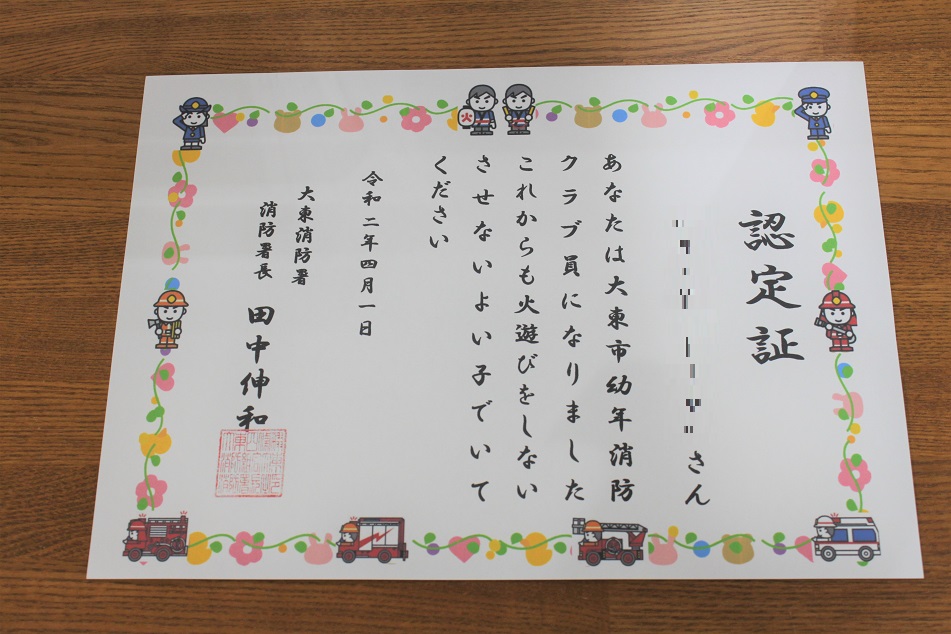 認定証
さん
あなたは大東市幼年消防
クラブ員になりました
これからも火遊びをしない
させないよい子でいて
ください
令和二年四月一日
大東消防署
消防署長 田中伸和
火